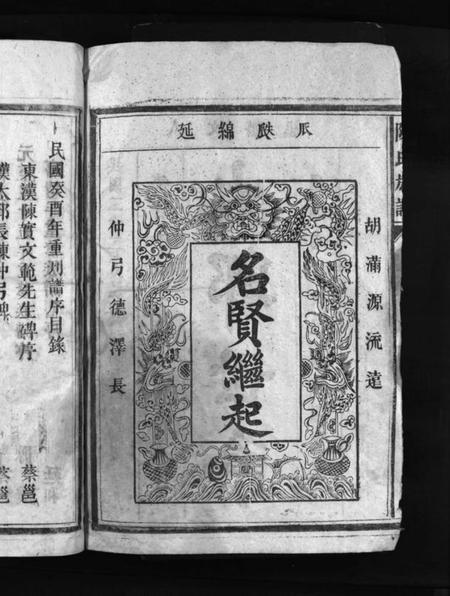 瓜瓞綿延
胡滿源流遠
名賢繼起
仲弓德澤長
民國癸酉年重刋譜序目錄
元
東漢陳寔文範先生碑序 蔡邕
漢太邱長陳仲弓碑 蔡邕
陳氏族譜